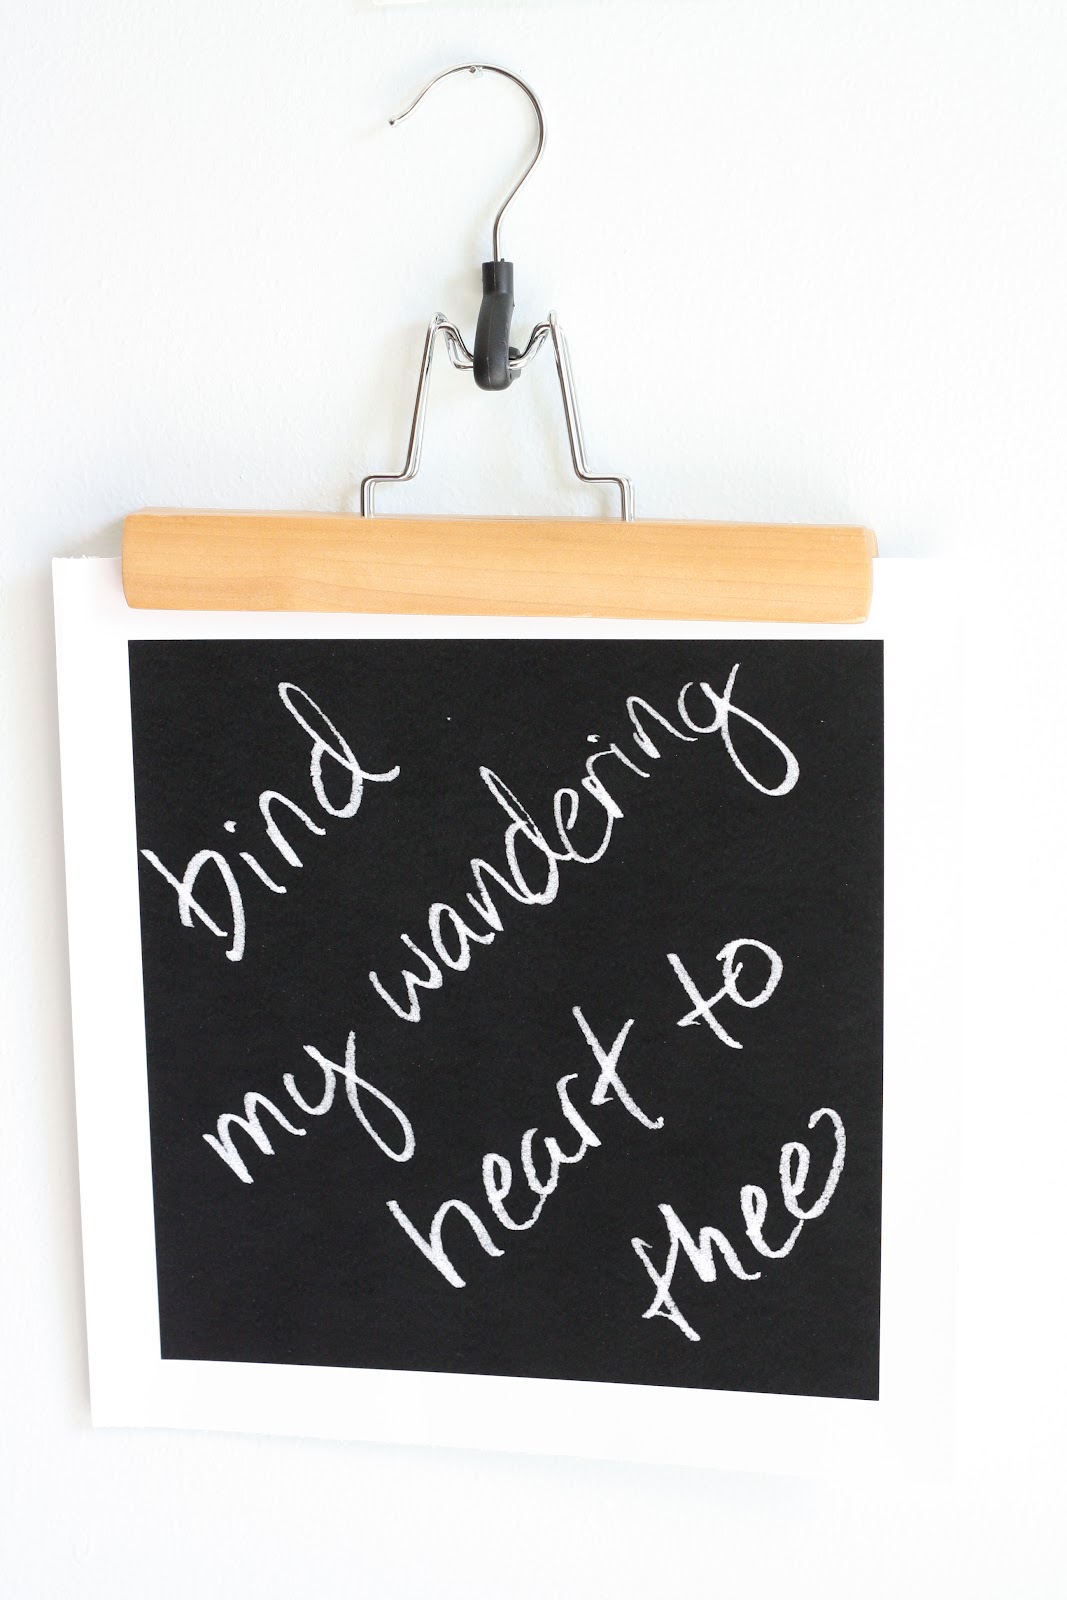 bind
my wandering
heart to
thee